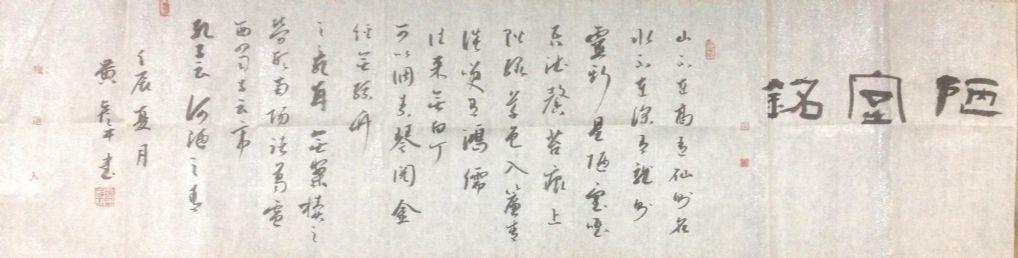 陋室銘
山不在高有仙则名
水不在深有龍则
靈斯是陋室唯
吾德馨苔痕上
階綠草色入簾青
談笑有鴻儒
往来無白丁
可以调素琴閱金
經無絲竹
之亂耳無案牘之
勞形南陽諸葛廬
西蜀子云亭
孔子云何陋之有
壬辰夏月
黄 书